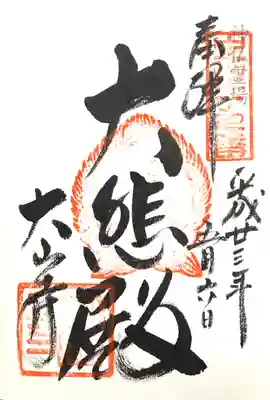 奉拝
平成廿三年
五月六日
大悲殿
大山寺